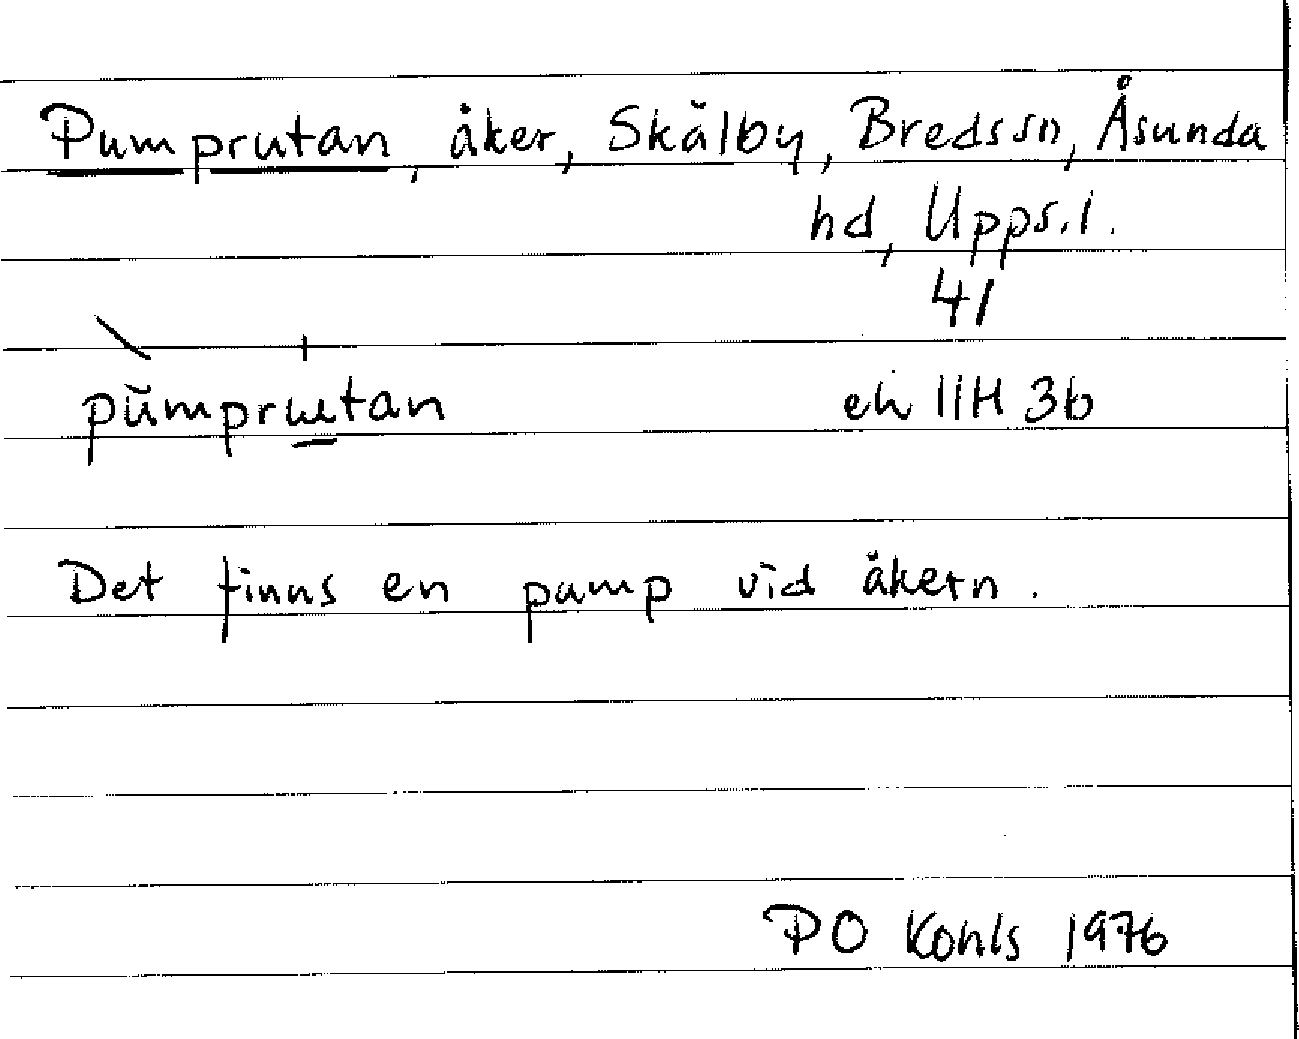 Pumprutan, åker, Skälby, Breds sn, Åsunda
hd, Upps.l.
41
pŭmprɯtan ek 11H 3b
Det finns en pump vid åkern.
PO Kohls 1976